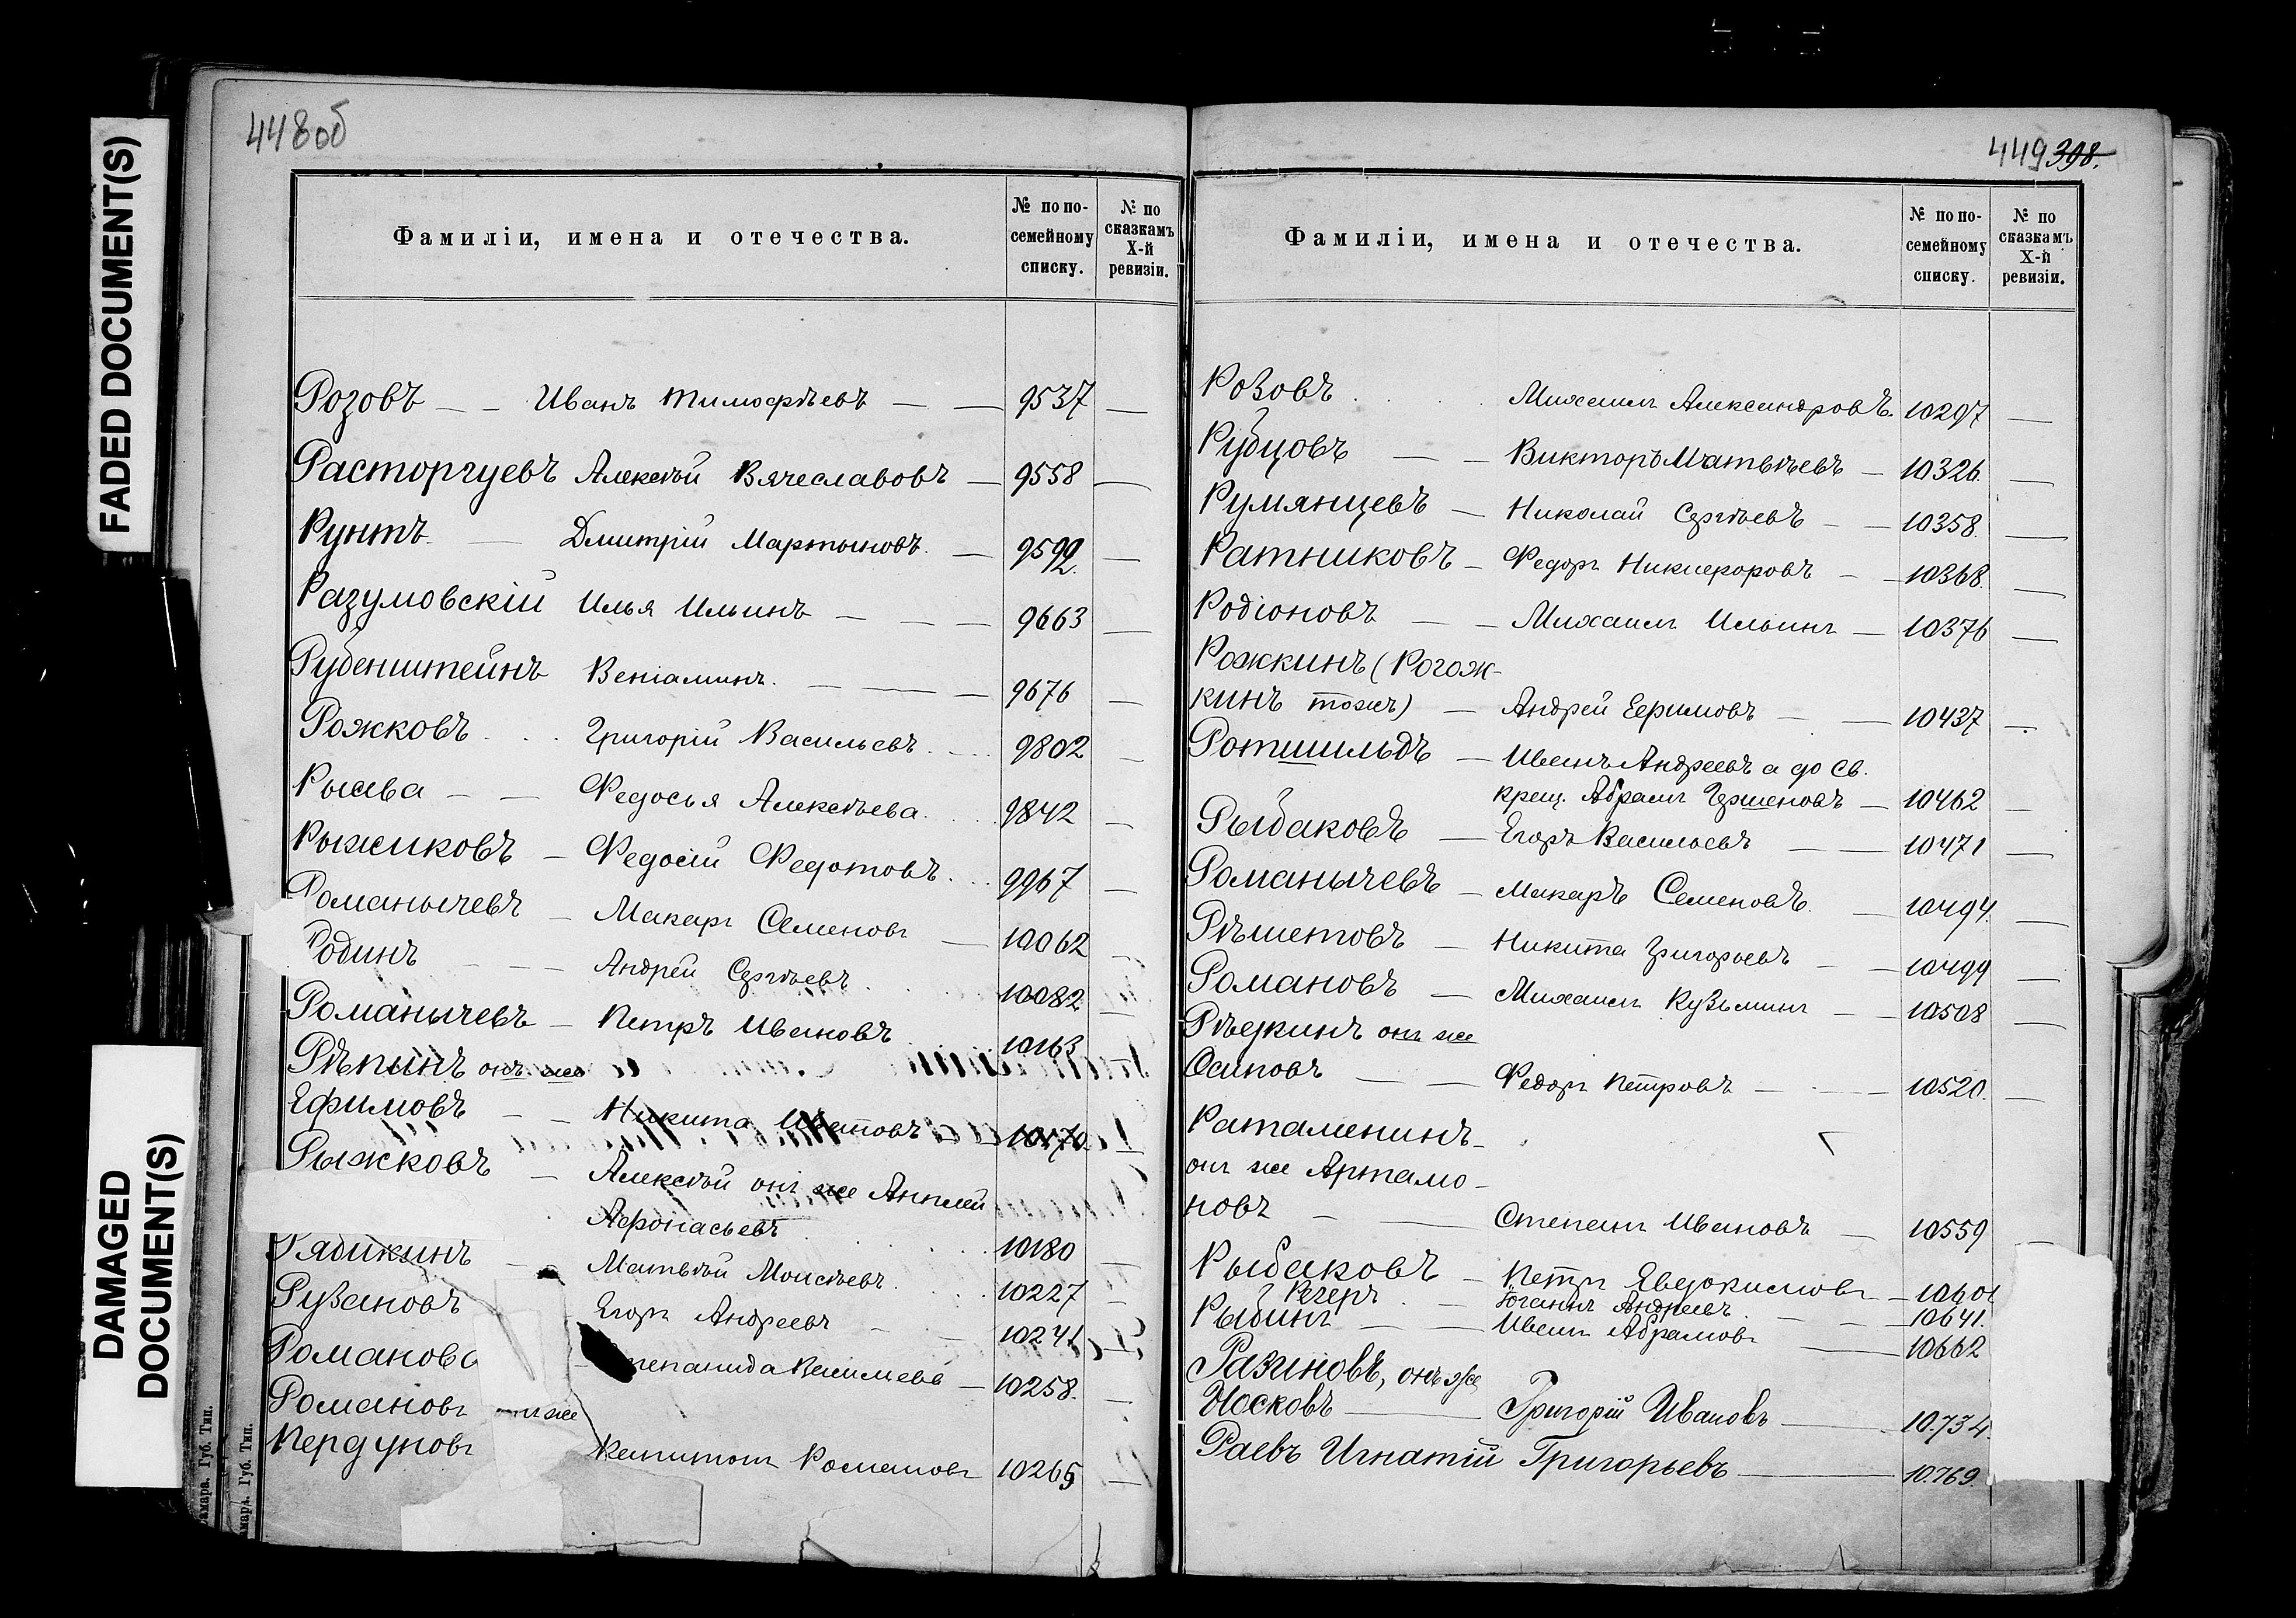 FADED DOCUMENT(S)
DAMAGED
DOCUMENT(S)
448об
Фамиліи, имена и отечества.
№ по по-
семейному
списку.
№ по
сказкамъ
X-й
ревизіи.
Розовъ — — Иванъ Тимофѣевъ — — 9537 —
Расторгуевъ Алексѣй Вячеславовъ — 9558 —
Рунтъ — Дмитрій Мартыновъ. — 9592. —
Разумовскій Илья Ильинъ — — — 9663 —
Рубенштейнъ Веніаминъ. — — — 9676 —
Рожковъ Григорій Васильевъ. 9802 —
Рыава — — Федосья Алексѣева. 9842 —
Рыжиковъ — Федосій Федотовъ. 9967 —
Романычевъ — Макаръ Семеновъ — 10062 —
Родинъ — — — Андрей Сергѣевъ 10082 —
Романычевъ — Петръ Ивановъ 10163
Рѣпинъ онъ же
Ефимовъ — — Никита Ивановъ 10170
Рыжковъ — Алексѣй онъ же
Афонасьевъ 10180 —
Рябикинъ — Матвѣй Моисѣевъ 10227 —
Рузановъ Егоръ Андреевъ — — 10241
Романова Степанида Васильева — 10258. —
Романовъ онъ же
Пердуновъ Капитонъ Романовъ 10265 —
449 398.
Фамиліи, имена и отечества.
№ по по-
семейному
списку.
№ по
сказкамъ
X-й
ревизіи.
Розовъ Михаилъ Александровъ. 10297 —
Рубцовъ — — Викторъ Матвѣевъ — 10326. —
Румянцевъ — Николай Сергѣевъ — — 10358. —
Ратниковъ — Федоръ Никифоровъ — — 10368. —
Родіоновъ — — Михаилъ Ильинъ — 10376 —
Рожкинъ (Рогож-
кинъ тожъ) — Андрей Ефимовъ — — 10437 —
Ротшильдъ — Иванъ Андреевъ а до Св.
крещ. Абрамъ Гершеновъ — 10462 —
Рыбаковъ — Егоръ Васильевъ — — 10471 —
Романычевъ — Макаръ Семеновъ. — 10494. —
Рѣшетовъ — Никита Григорьевъ — — 10499 —
Романовъ — Михаилъ Кузьминъ — — 10508 —
Рѣдкинъ онъ же
Осиповъ — — Федоръ Петровъ — — 10520. —
Раталенинъ —
онъ же Артамо-
новъ — — Степанъ Ивановъ — 10559 —
Рыбаковъ — Петръ Евдокимовъ — 10601
Регеръ — Іоганнъ Андреевъ — — 10641.
Рыбинъ — — Иванъ Абрамовъ — 10662
Разиновъ, онъ же
Носковъ — Григорій Ивановъ — 10.734.
Раевъ Игнатій Григорьевъ — 10.769.
амара. Губ. Тип.
мара. Губ. Тип.